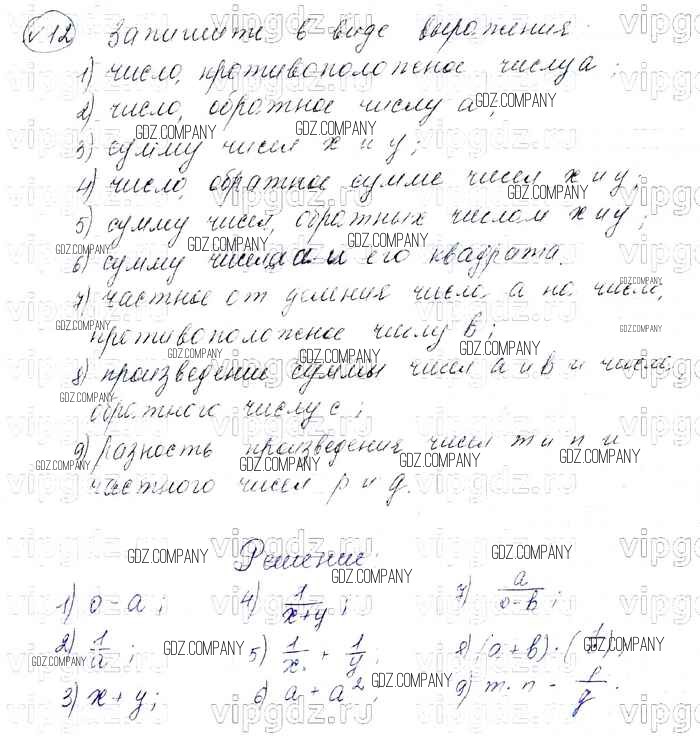 √12 Запишите в виде выражения:
1) число, противоположное числу а;
2) число, обратное числу а;
3) сумму чисел х и у;
4) число, обратное сумме чисел х и у;
5) сумму чисел, обратных числам х и у;
6) сумму числа а и его квадрата.
7) частное от деления числа а на число,
противоположное числу b;
8) произведение суммы чисел а и b и числа,
обратного числу с;
9) разность произведения чисел m и n и
частного чисел p и q.
Решение:
1) 0-a; 4) 1/(x+y); 7) a/(0-b);
2) 1/a; 5) 1/x + 1/y; 8) (a+b)·(
3) x+y; 6) a+a²; 9) m·n - p/q.
GDZ.COMPANY
vipgdz.ru